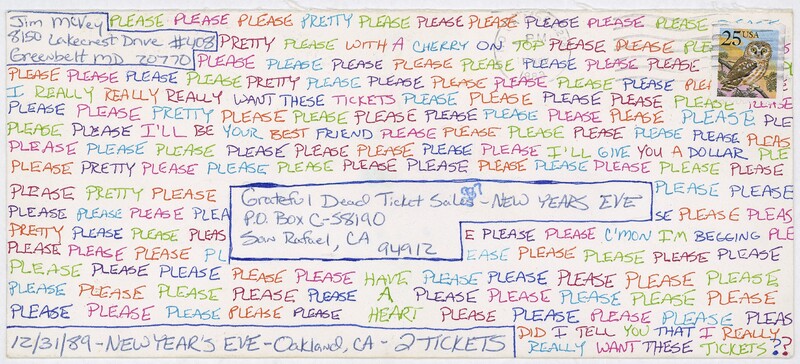 Jim McVey
8150 Lakecrest Drive #408
Greenbelt MD 20770
25 USA
PLEASE PLEASE PLEASE PRETTY PLEASE PLEASE PLEASE PLEASE PLEASE PLEASE
PRETTY PLEASE WITH A CHERRY ON TOP PLEASE PLEASE PLE
PLEASE PLEASE PLEASE PLEASE PLEASE PLEASE PLEASE PLEASE PLEASE
PLEASE PLEASE PLEASE PLEASE PRETTY PLEASE PLEASE PLEASE PLEASE PLEASE PLEASE PLEASE
I REALLY REALLY REALLY WANT THESE TICKETS PLEASE PLEASE PLEASE PLEASE PLEASE PLEASE
PLEASE PLEASE PRETTY PLEASE PLEASE PLEASE PLEASE PLEASE PLEASE PLEASE PLEASE PLE
PLEASE PLEASE I'LL BE YOUR BEST FRIEND PLEASE PLEASE PLEASE PLEASE PLEASE PLEASE PLEAS
PLEASE PLEASE PLEASE PLEASE PLEASE PLEASE PLEASE PLEASE I'LL GIVE YOU A DOLLAR PLE
PLEASE PRETTY PLEASE PLEASE PLEASE PLEASE PLEASE PLEASE PLEASE PLEASE PLEASE PLEASE
PLEASE PRETTY PLEASE PLEASE
PLEASE PLEASE PLEASE PLEA
PRETTY PLEASE PLEASE PLEAS
PLEASE PLEASE PLEASE PL
Grateful Dead Ticket Sales - NEW YEARS EVE
P.O. Box C-S8190
San Rafael, CA
94912
PLEASE PLEASE PLE
PLEASE PLEASE
E PLEASE PLEASE C'MON I'M BEGGING PLE
EASE PLEASE PLEASE PLEASE PLEASE PLEASE
PLEASE PLEASE PLEASE PLEASE PLEASE HAVE PLEASE PLEASE PLEASE PLEASE PLEASE
PLEASE PLEASE PLEASE PLEASE PLEASE PLEASE A PLEASE PLEASE PLEASE PLEASE PLEASE
PLEASE PLEASE PLEASE PLEASE PLEASE HEART PLEASE PLEASE PLEASE PLEASE PLEASE PLEAS
12/31/89 - NEW YEAR'S EVE - Oakland, CA - 2 TICKETS
DID I TELL YOU THAT I REALLY
REALLY WANT THESE TICKETS??